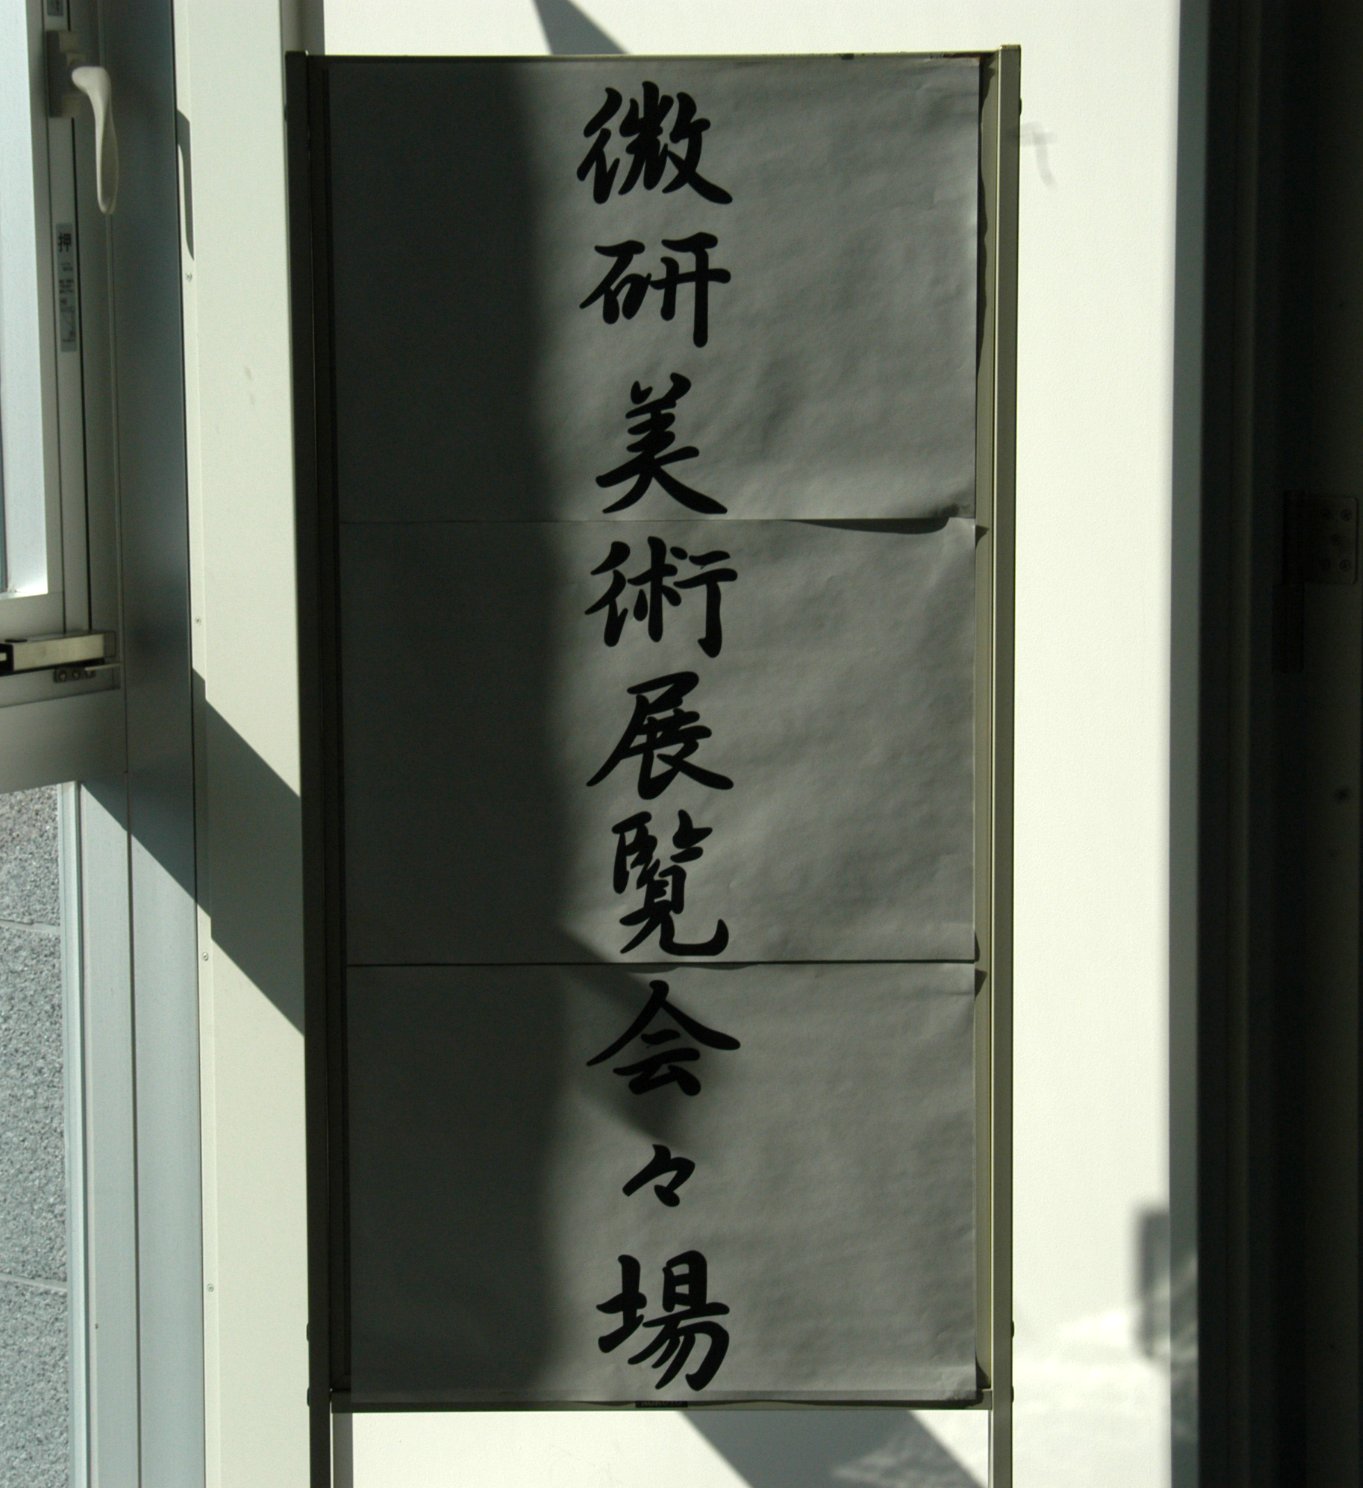 微研美術展覧会々場
押